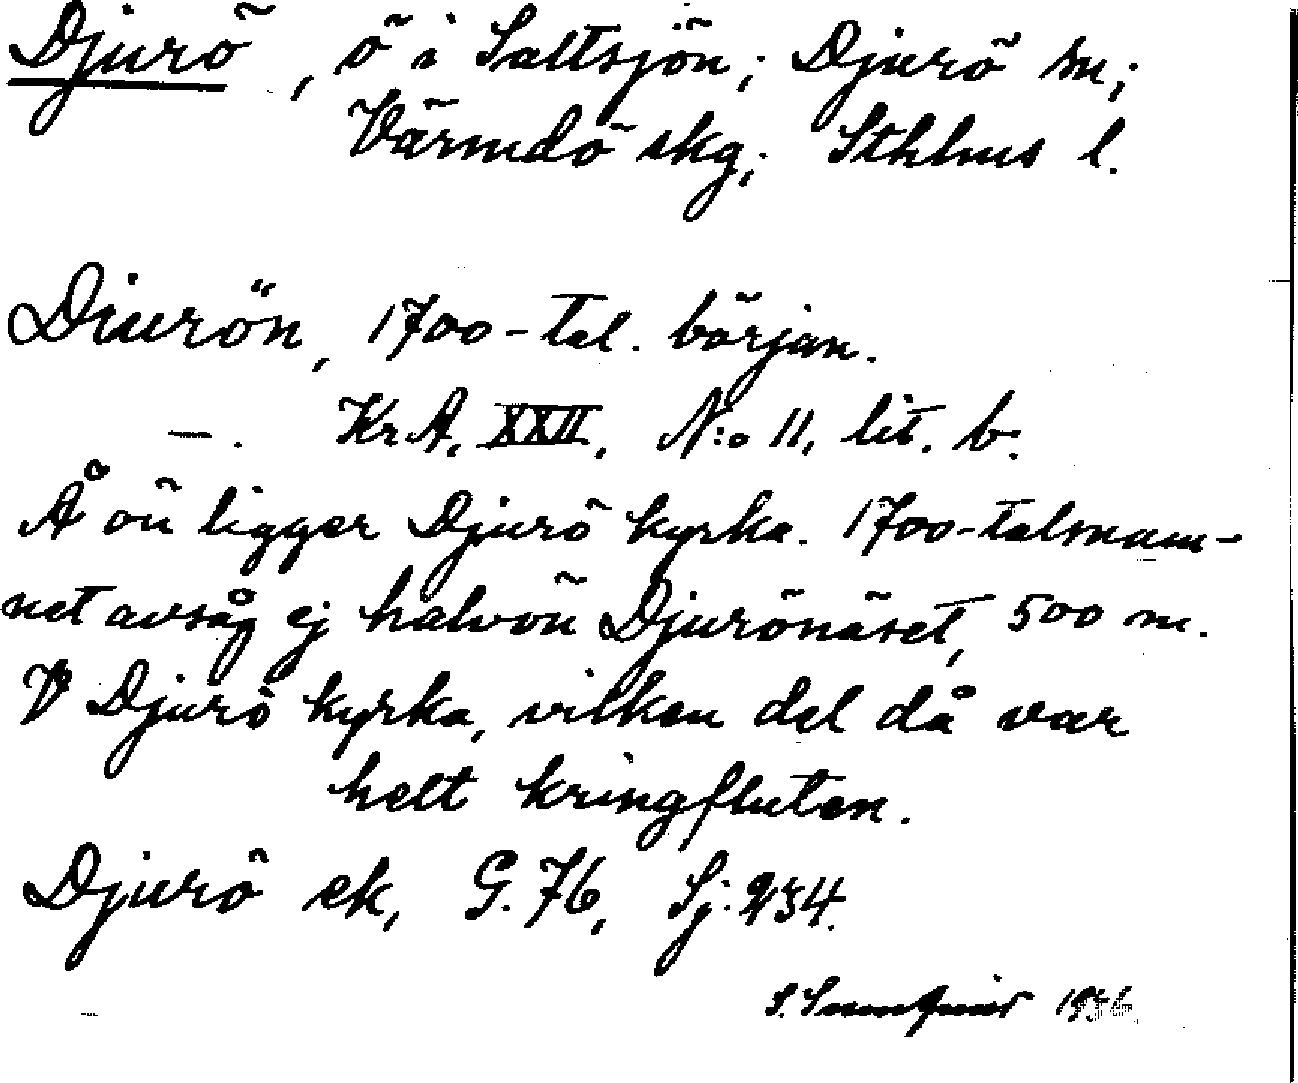 Djurö, ö i Saltsjön; Djurö sn;
Värmdö skg; Sthlms l.
Diurön, 1700-tal. början.
—. Kr.A. XXII. N:o 11. lit. b.
Å ön ligger Djurö kyrka. 1700-talsnam-
net avsåg ej halvön Djurönäset, 500 m.
V Djurö kyrka, vilken del då var
helt kringfluten.
Djurö ek, G. 76, Sj:
S. 19